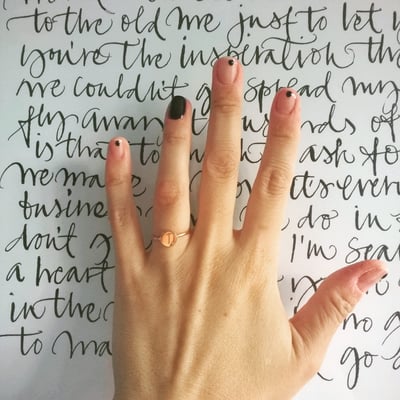 to the old me just to let y
you're the inspiration tha
we couldn't go spread my
fly away thousands of
is that to ask fo
we ma its every
busine do in s
don't g I'm sea
a heart
in the no
to ma go s